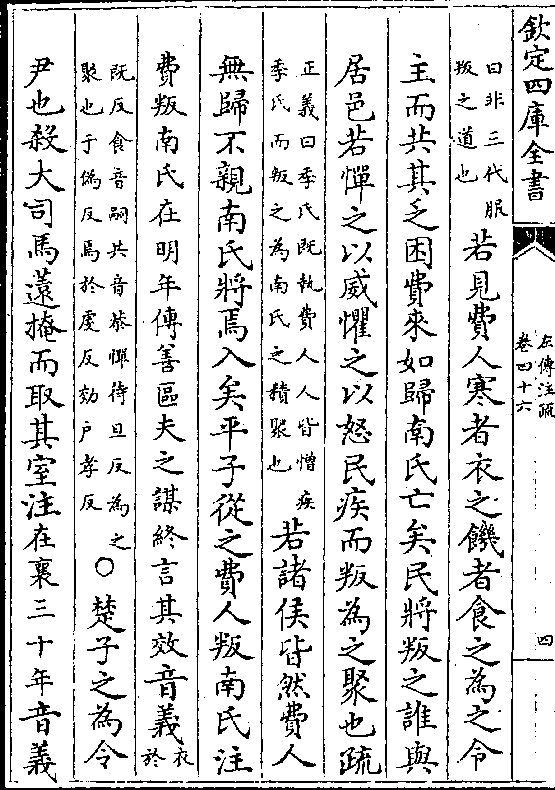 欽定四庫全書
左傳注疏
卷四十六
四
曰非三代服
叛之道也
若見費人寒者衣之饑者食之為之令
主而共其乏困費來如歸南氏亡矣民將叛之誰與
居邑若憚之以威懼之以怒民疾而叛為之聚也疏
正義曰季氏既執費人人皆憎疾
季氏而叛之為南氏之積聚也
若諸侯皆然費人
無歸不親南氏將焉入矣平子從之費人叛南氏注
費叛南氏在明年傳善區夫之謀終言其效音義
衣於
既反食音嗣共音恭憚待旦反為之
聚也于偽反焉於虔反効戶孝反
○楚子之為令
尹也殺大司馬薳掩而取其室注在襄三十年音義